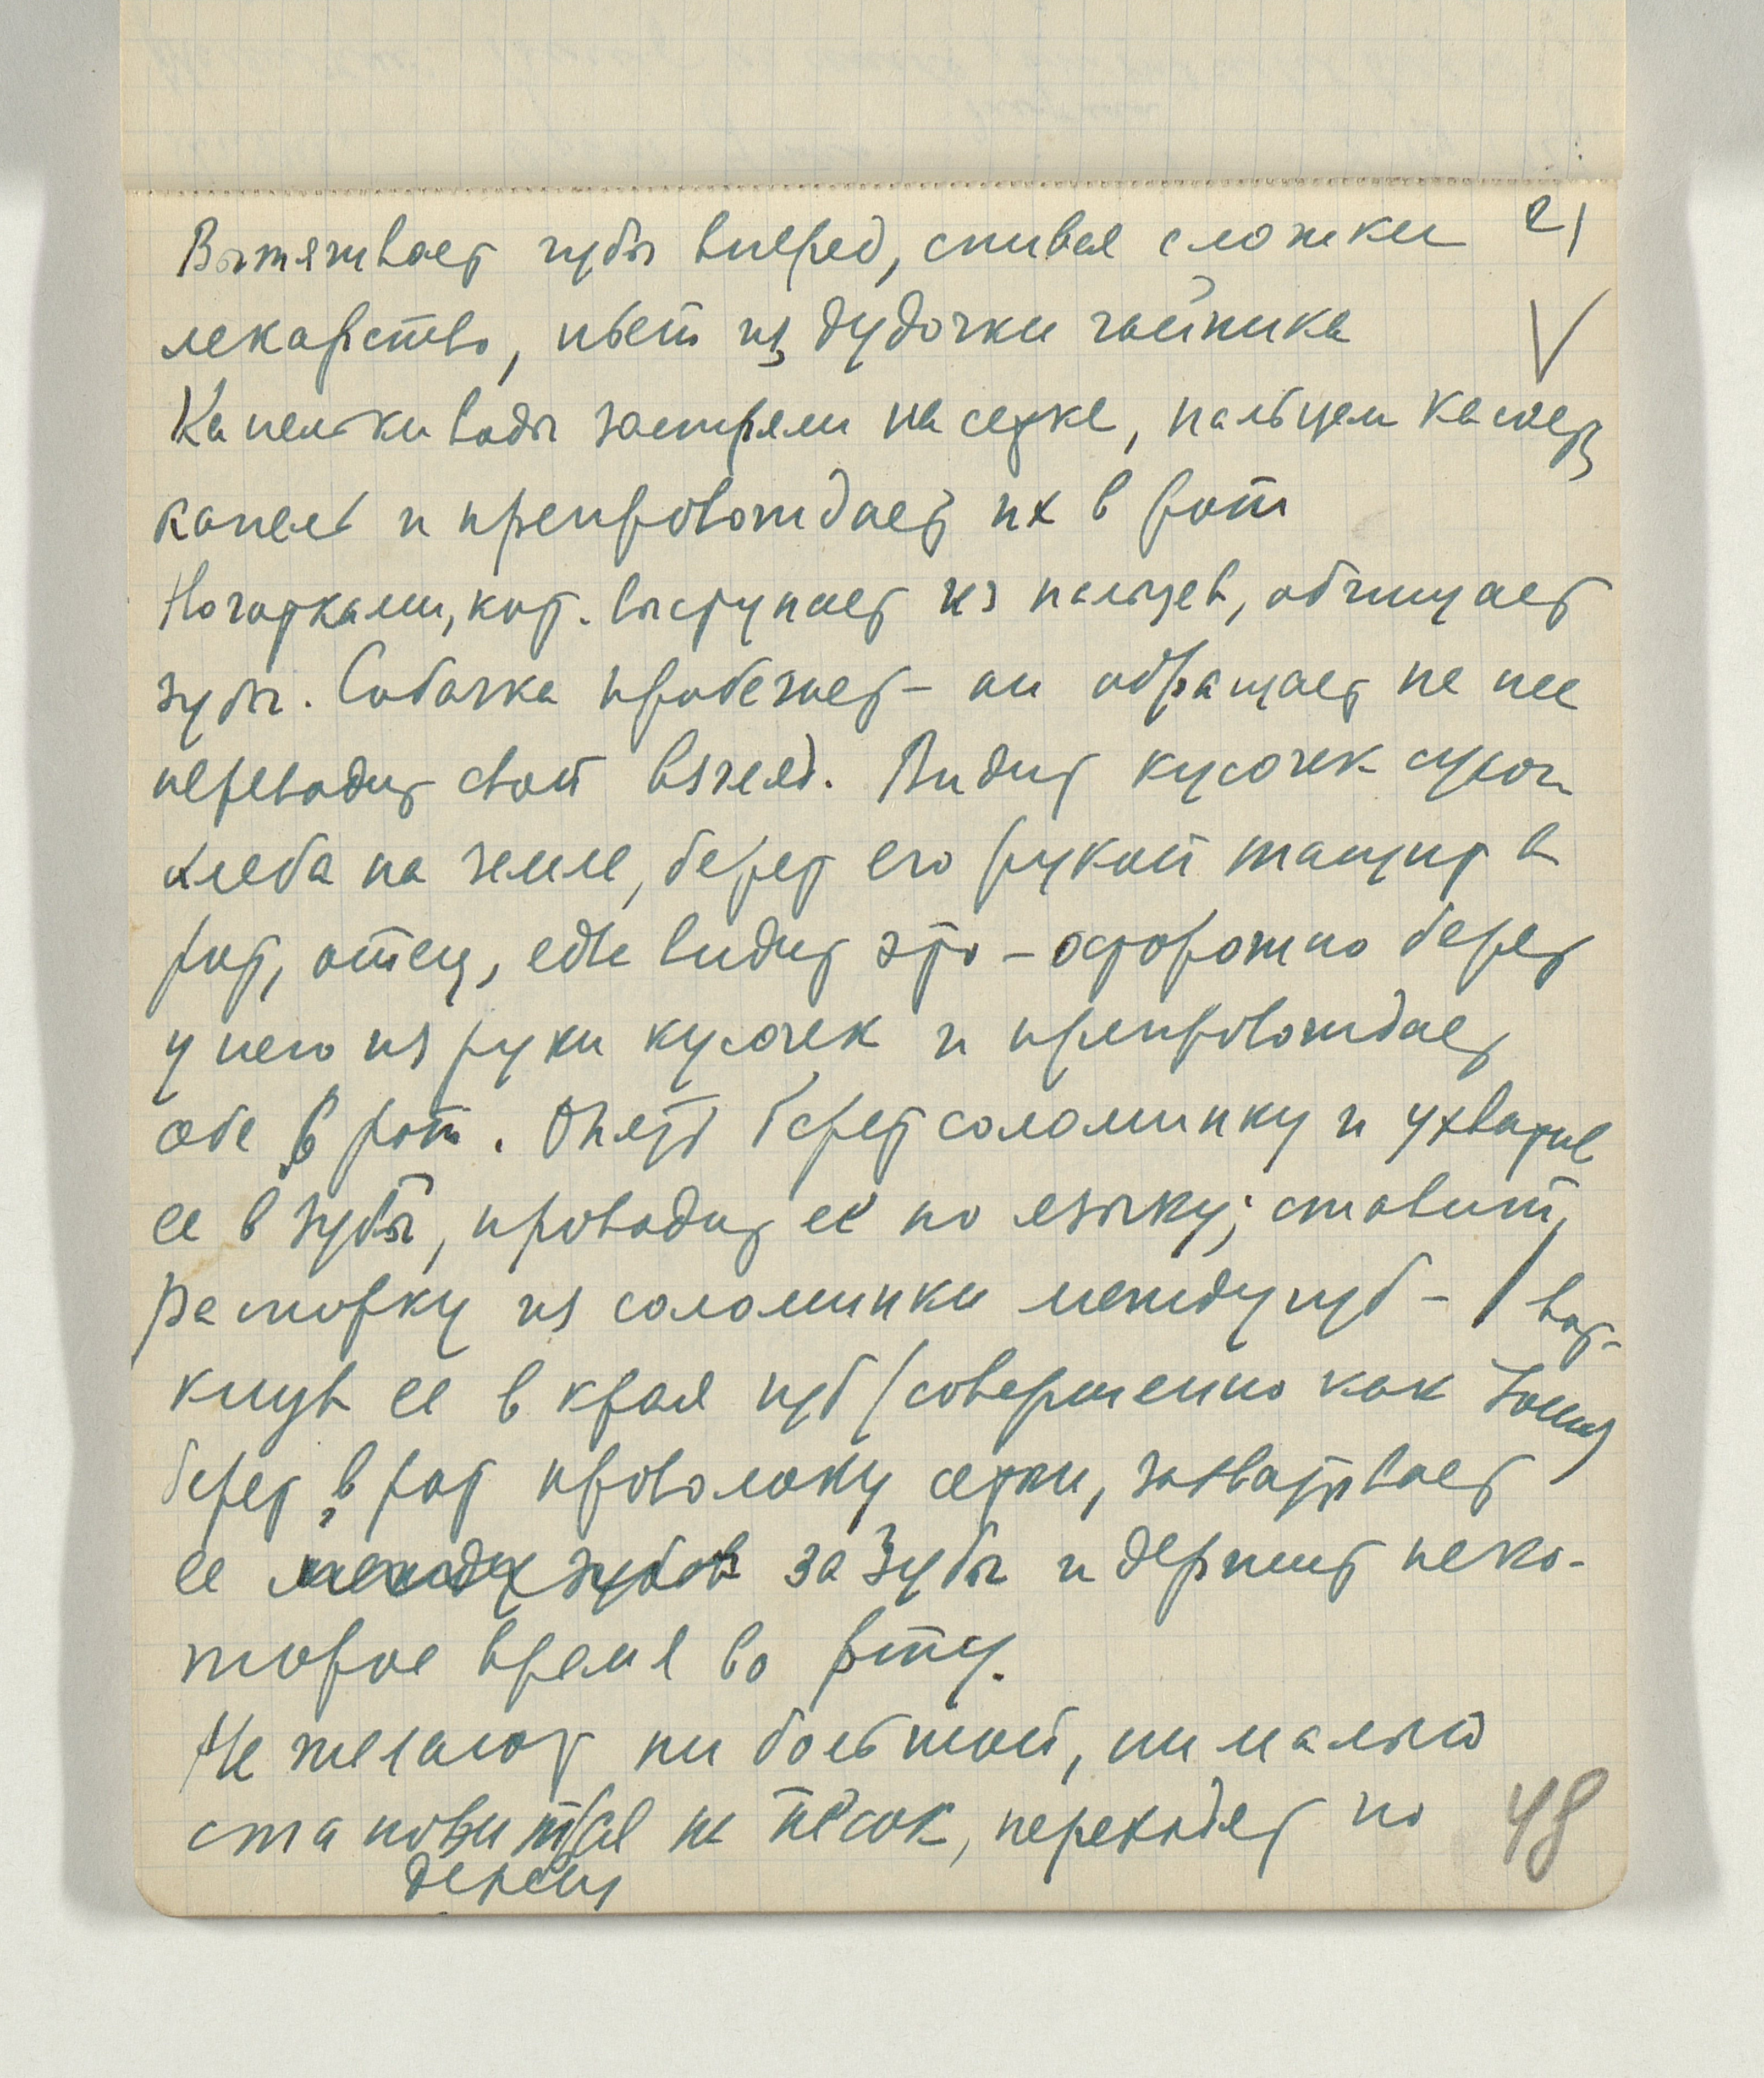 21
Вытягивает губы вперед, спивая с ложки
лекарство, пьет из дудочки чайника
V
Капельки воды застряли на сетке, пальцем касается
капель и препровождает их в рот
Ноготками, кот. выступает из пальцев, обчищает
зубы. Собачка пробежит – он обращает на нее
переводит свой взгляд. Видит кусочек сухого
хлеба на земле, берет его рукой тащит в
рот, отец, едва видит это – осторожно берет
у него из руки кусочек и препровождает
себе в рот. Опять берет соломинку и ухватив
ее в зубы, проводит ее по языку; ставит,
распорку из соломинки между губ – / вот-
кнув ее в края губ (совершенно как
берет в рот проволоку сетки, захватывает
ее между зубов за зубы и держит неко-
торое время во рту.
Не желают ни большой, ни малый
становиться на песок, переходят по
дереву
48